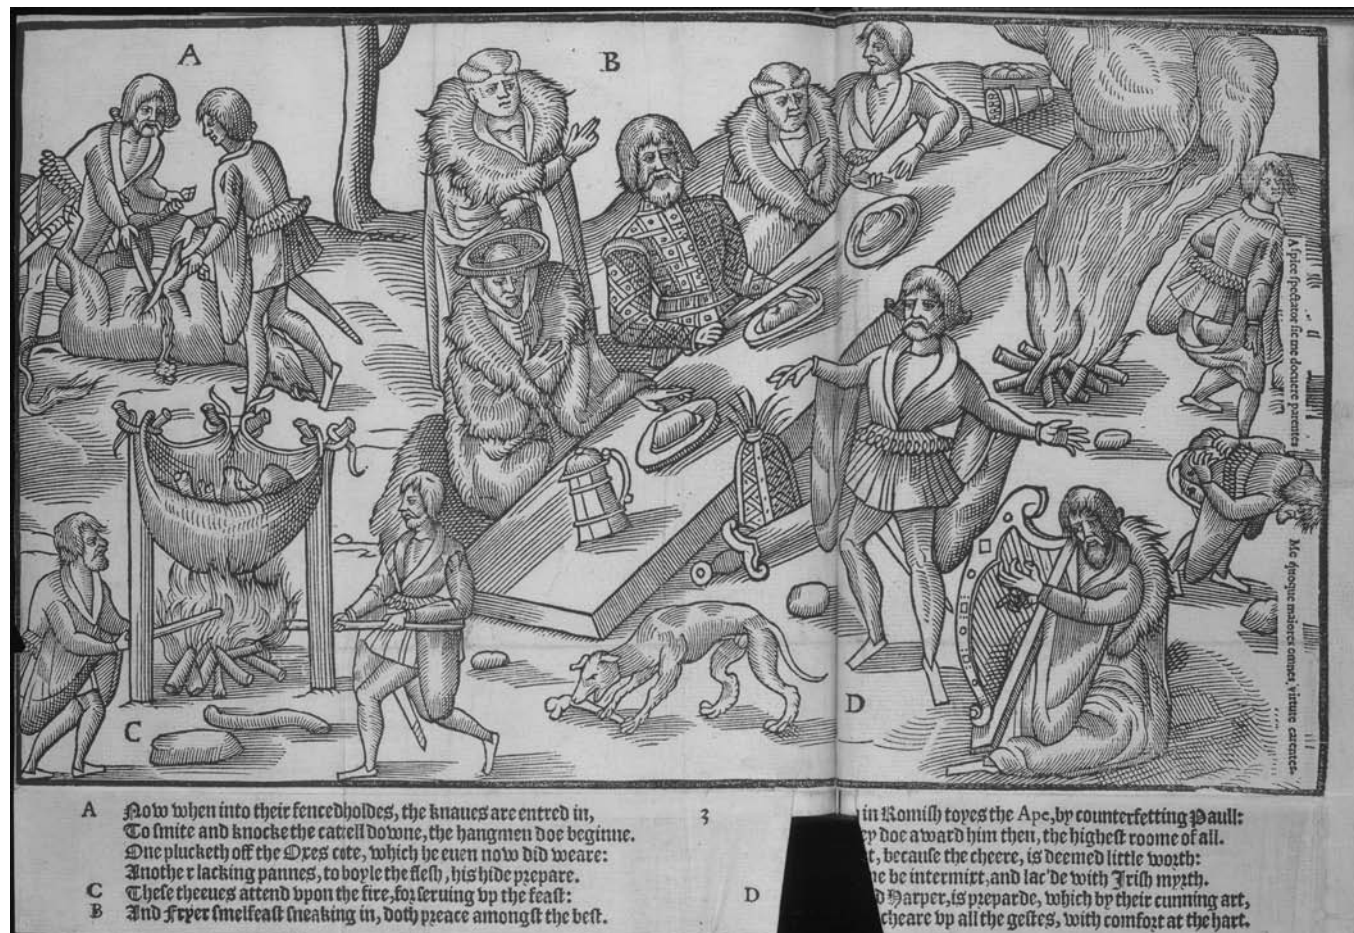 A
B
C
D
Aspice spectator sic me docuere parentes
Me quoque maiores omnes, virtute carentes.
A Now when into their fencedholdes, the knaues are entred in,
To smite and knocke the cattell downe, the hangmen doe beginne.
One plucketh off the Oxes cote, which he euen now did weare:
Another lacking pannes, to boyle the flesh, his hide prepare.
C These theeues attend vpon the fire, for seruing vp the feast:
B And Fryer smelfeast sneaking in, doth preace amongst the best.
3
in Romish toyes the Ape, by counterfetting Paull:
doe award him then, the highest roome of all.
because the cheere, is deemed little worth:
be intermixt, and lac'de with Irish myrth.
D Harper, is preparde, which by their cunning art,
cheare vp all the gestes, with comfort at the hart.